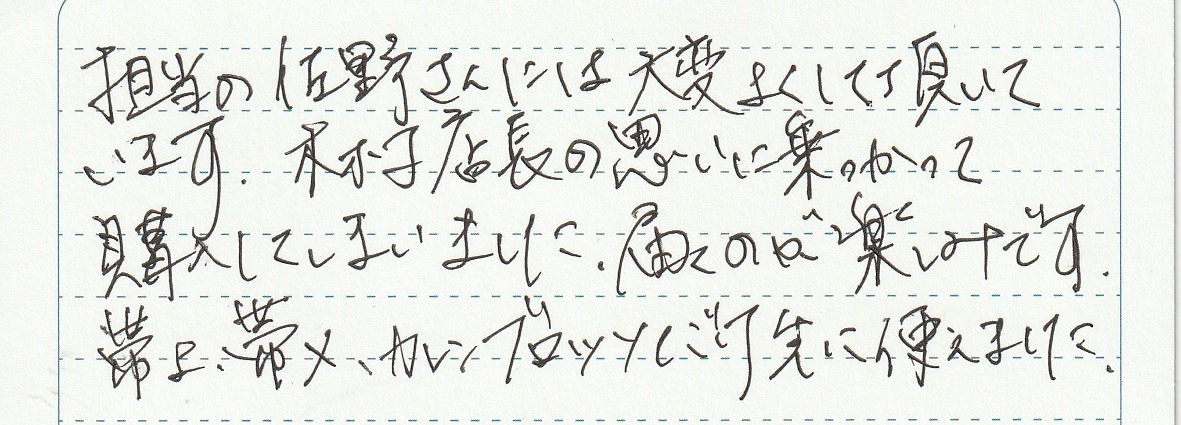 担当の佐野さんには大変よくして頂いて
います。木村店長の思いに乗っかって
購入してしまいました。届くのが楽しみです。
帯よ、帯〆、カレンブロッソ
先に使えました。